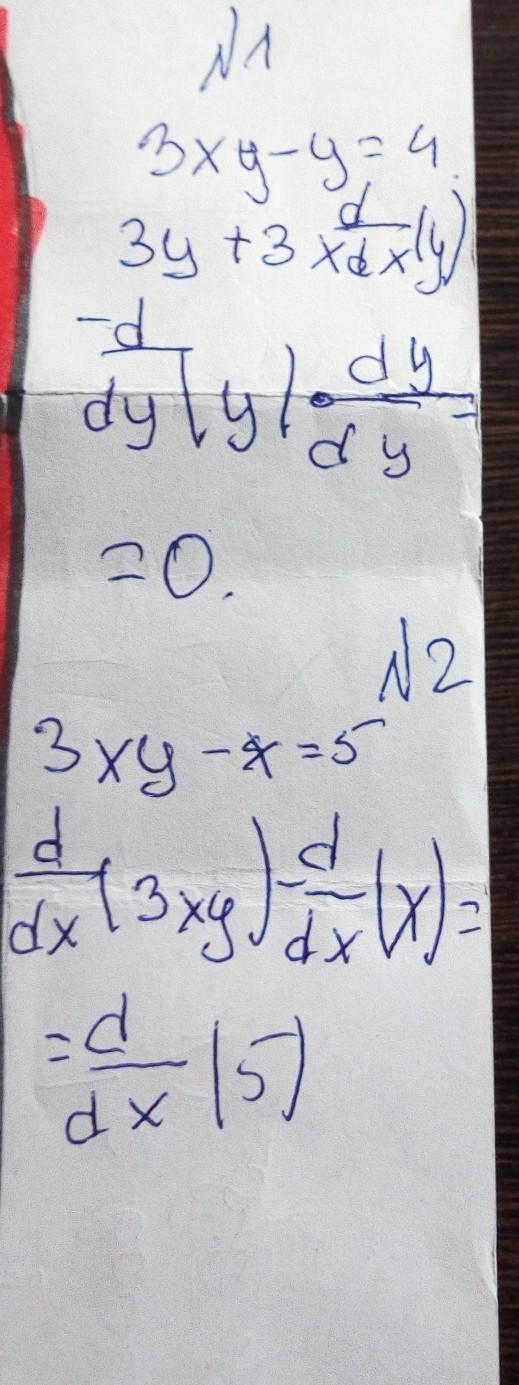 N1
3xy-y=4.
3y+3x d/dx(y)
-d/dy(y)·dy/dy=
=0.
N2
3xy-x=5
d/dx(3xy)-d/dx(x)=
=d/dx(5)